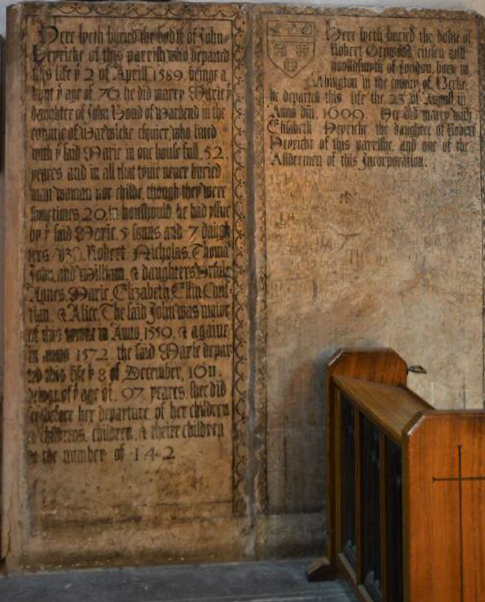 Here lyeth buried the bodie of John
Heyricke of this parrish who departed
this life yͤ 2 of Aprill 1589 being a
bout yͤ age of 76 he did marry Marie yͤ
deaughter of John Bond of Wardend in the
countie of Warwicke esquier who liued
with yͤ said Marie in one house full 52
yeares and in all that tyme neuer buried
man woman nor childe though they were
sometimes 20 in houshould he had yssue
by yͤ said Marie 5 sonns and 7 daugh
ters Robert, Nicholas, Thomas
John, and William, & daughters Vrsula
Agnes, Marie, Elizabeth, Ellin, Chris
tian, & Alice, The said John was maior
of this towne in Anno 1559, & againe
in anno 1572, the said Marie depar
ted this life yͤ 8 of December, 1611,
beinge of yͤ age of, 97 yeares, shee did
see before her departure of her children
& childrens, children, & theire children
to the number of 142
Here lyeth buried the bodie of
Robert Citysen and
of London, born in
Abington in the county of Berke,
he departed this life the 23 of August in
Anno dni, 1609 He did marry with
Elisabeth Heyricke the daughter of Robert
Heyricke of this parrishe, and one of the
Aldermen of this Incorporation.